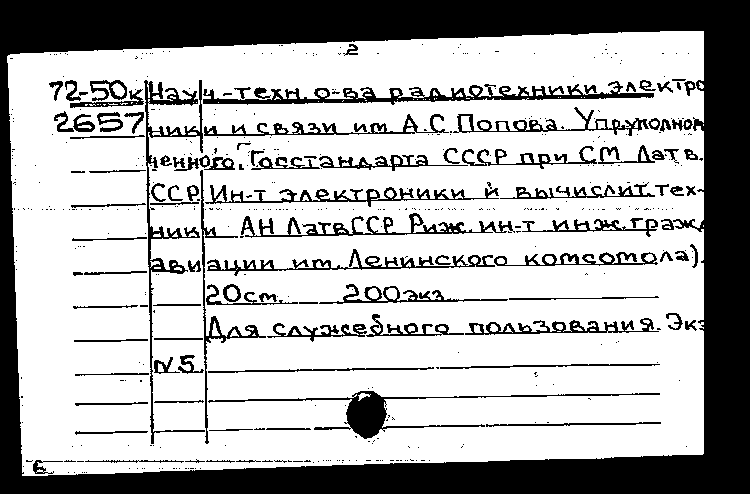 2
72-50к Науч.-техн. о-ва радиотехники, электро
2657 ники и связи им. А.С. Попова. Упр. уполном
ченного. Госстандарта СССР при СМ Латв.
ССР. Ин-т электроники и вычислит. тех-
ники АН ЛатвССР. Риж. ин-т инж. гражд
авиации им. Ленинского комсомола).
20см. 200экз.
Для служебного пользования. Экз
N5.
6